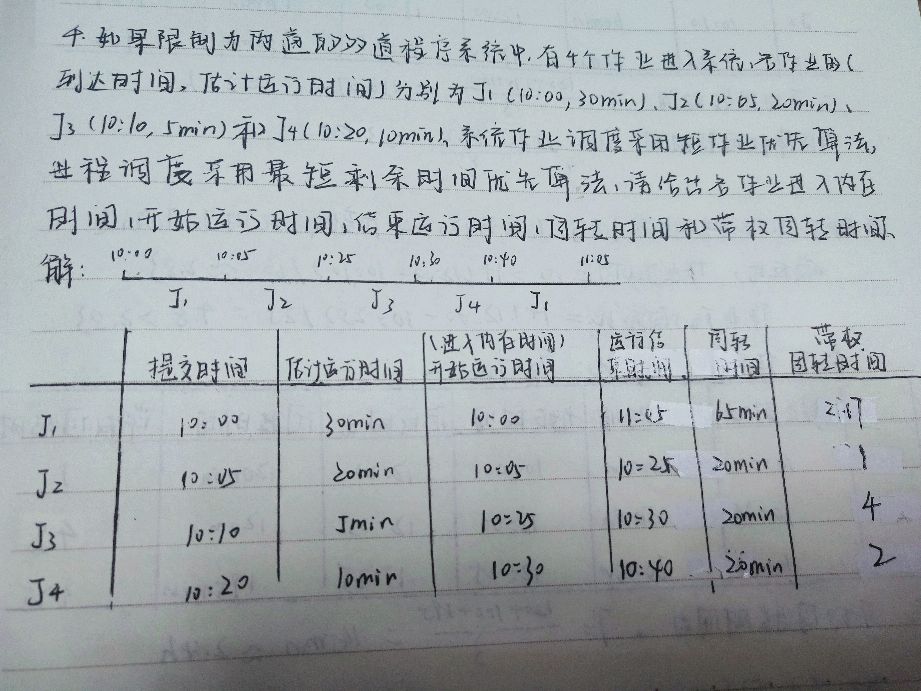 4. 如果限制为两道的多道程序系统中,有4个作业进入系统,各作业的(
到达时间,估计运行时间)分别为J1(10:00,30min)、J2(10:05,20min)、
J3(10:10,5min)和J4(10:20,10min)、系统作业调度采用短作业优先算法,
进程调度采用最短剩余时间优先算法,请给出各作业进入内存
时间,开始运行时间,结束运行时间,周转时间和带权周转时间、
解: 10:00 10:05 10:25 10:30 10:40 11:05
J1 J2 J3 J4 J1
提交时间 估计运行时间 (进入内存时间)开始运行时间 运行结束时间 周转时间 带权周转时间
J1 10:00 30min 10:00 11:05 65min 2.17
J2 10:05 20min 10:05 10:25 20min 1
J3 10:10 5min 10:25 10:30 20min 4
J4 10:20 10min 10:30 10:40 20min 2